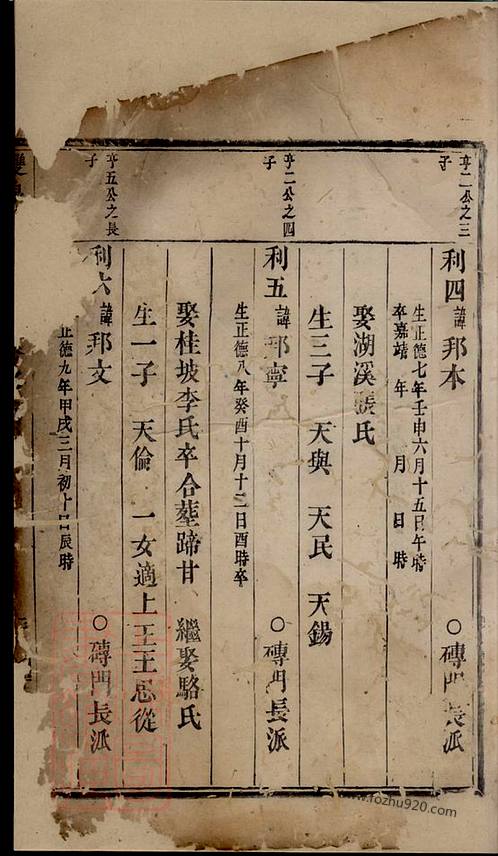 亨二公之三
子
利四諱邦本 ○磚門長派
生正德七年壬申六月十五日午時
卒嘉靖 年 月 日 時
娶湖溪張氏
生三子 天與 天民 天錫
亨二公之四
子
利五諱邦寧 ○磚門長派
生正德八年癸酉十月十二日酉時卒
娶桂坡李氏卒合塟蹄甘 繼娶駱氏
生一子 天倫 一女適上王王思從
亨五公之長
子
利六諱邦文 ○磚門長派
正德九年甲戌三月初十日辰時
www.fozhu920.com